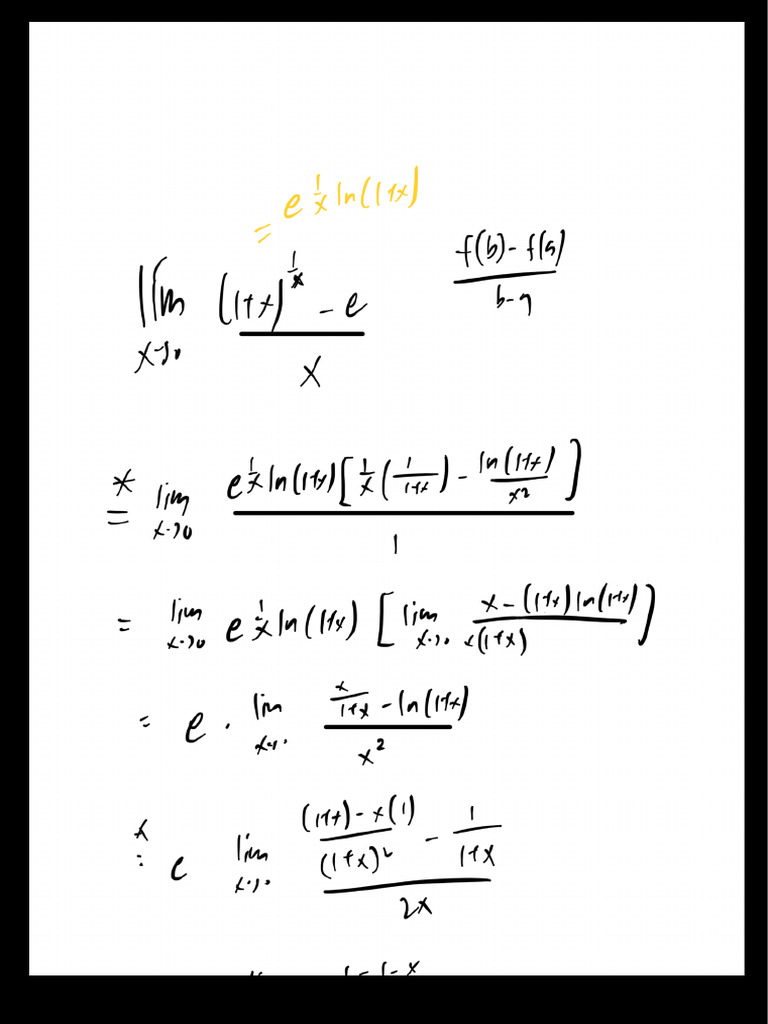 = e^{\frac{1}{x} ln(1+x)}
lim_{x→0} \frac{(1+x)^{\frac{1}{x}} - e}{x}   \frac{f(b) - f(a)}{b-a}
* = lim_{x→0} \frac{e^{\frac{1}{x} ln(1+x)} [\frac{1}{x}(\frac{1}{1+x}) - \frac{ln(1+x)}{x^2}]}{1}
= lim_{x→0} e^{\frac{1}{x} ln(1+x)} [lim_{x→0} \frac{x - (1+x) ln(1+x)}{x(1+x)}]
= e · lim_{x→0} \frac{\frac{x}{1+x} - ln(1+x)}{x^2}
* = e lim_{x→0} \frac{\frac{(1+x) - x(1)}{(1+x)^2} - \frac{1}{1+x}}{2x}
1-1-x